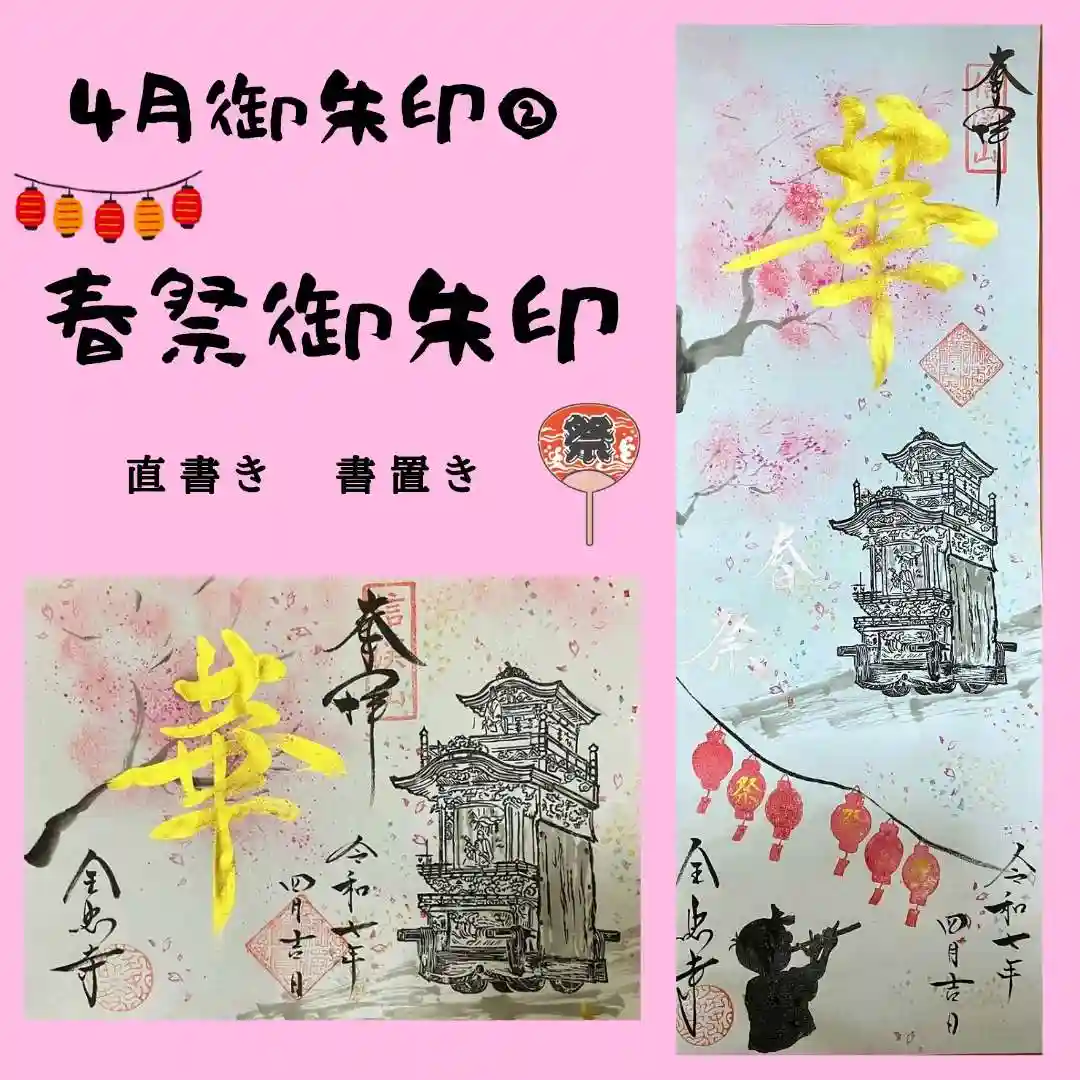 4月御朱印②
春祭御朱印
直書き 書置き
祭
奉拝
華
令和七年
四月吉日
全忠寺
奉拝
華
春
祭
祭
令和七年
四月吉日
全忠寺